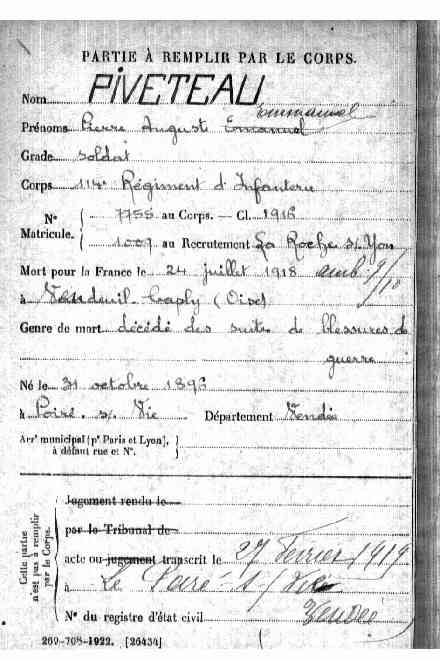 PARTIE À REMPLIR PAR LE CORPS.
Nom PIVETEAU
Emmanuel
Prénoms Pierre Auguste Emanuel
Grade soldat
Corps 114e Régiment d'Infanterie
N° Matricule. { 7755 au Corps. — Cl. 1916
1009 au Recrutement La Roche s/ Yon
Mort pour la France le 24 juillet 1918 amb. 9/10
à Vendeuil-Caply (Oise)
Genre de mort décédé des suites de blessures de
guerre
Né le 31 octobre 1896
à Poiré s/ Vie Département Vendée
Arrt municipal (pr Paris et Lyon), à défaut rue et N°. }
Cette partie n'est pas à remplir par le Corps.
Jugement rendu le
par le Tribunal de
acte ou jugement transcrit le 27 Février 1919
à Le Poiré-s/Vie
N° du registre d'état civil Vendée
269-708-1922. [26434]